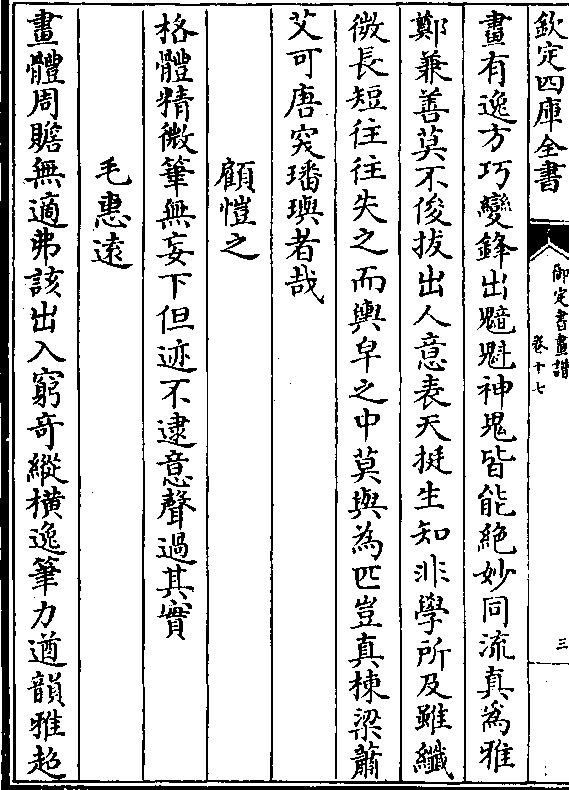 欽定四庫全書
御定書畫譜
卷十七
三
畫有逸方巧變鋒出魑魅神鬼皆能絶妙同流真為雅
鄭兼善莫不俊拔出人意表天挺生知非學所及雖纖
微長短往往失之而輿皁之中莫與為匹豈真棟梁蕭
艾可唐突璠璵者哉
顧愷之
格體精微筆無妄下但迹不逮意聲過其實
毛惠遠
畫體周贍無適弗該出入窮奇縱横逸筆力遒韻雅超